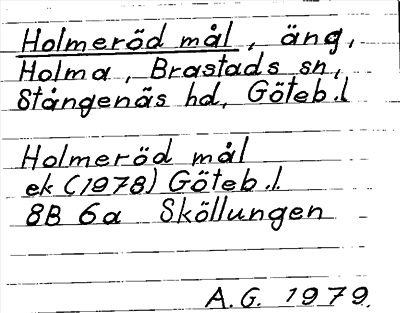 Holmeröd mål, äng,
Holma, Brastads sn,
Stångenäs hd, Göteb.l
Holmeröd mål
ek (1978) Göteb.l.
8B 6a Sköllungen
A.G. 1979.